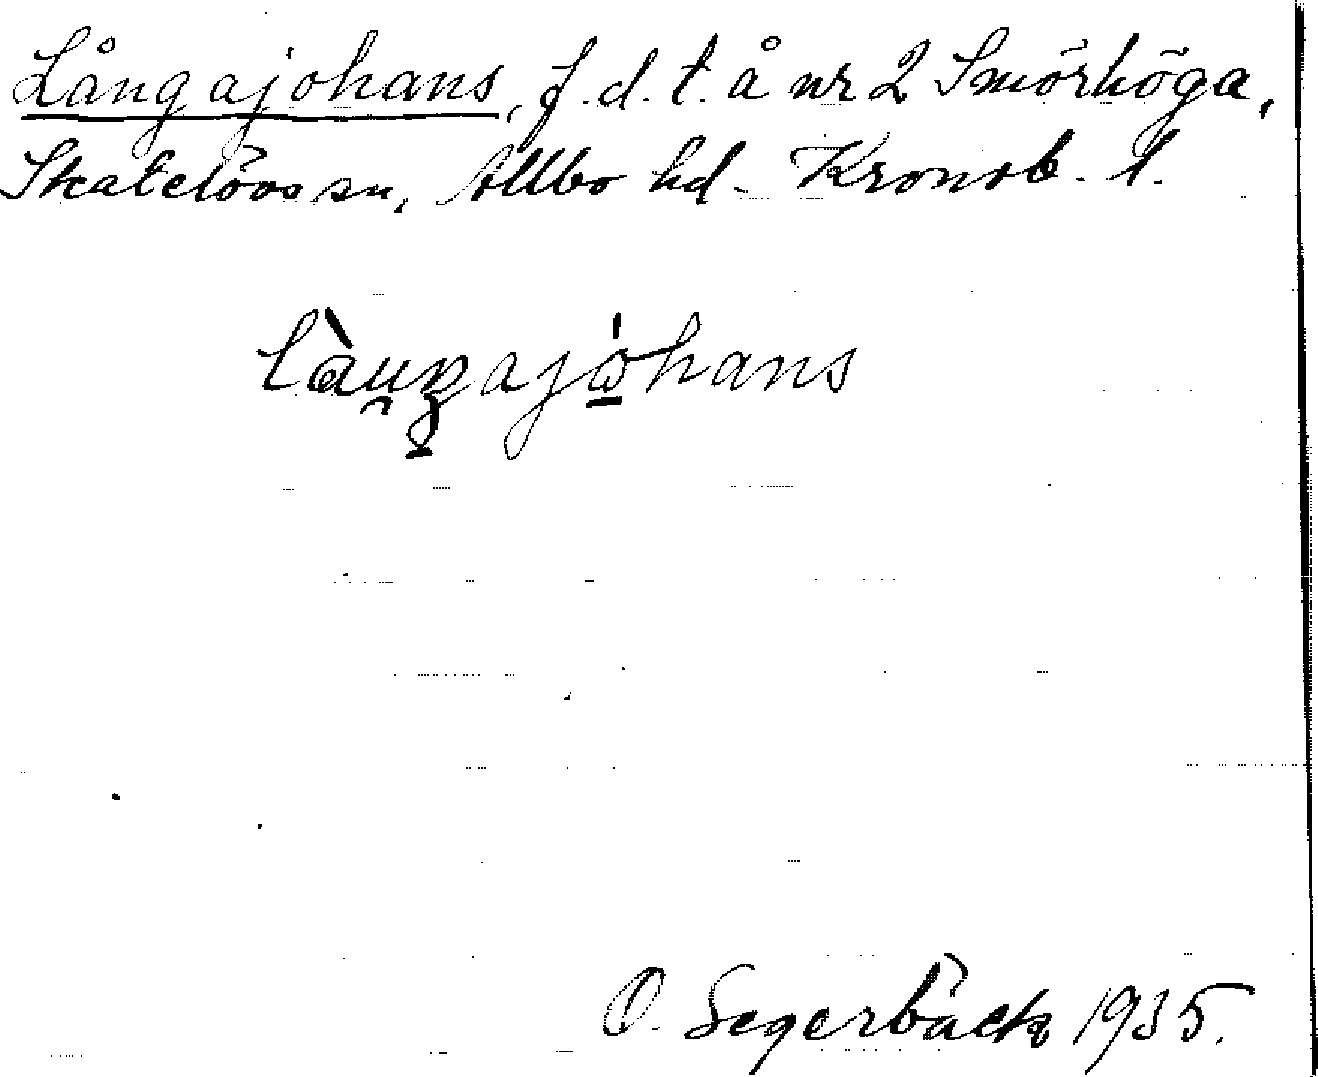 Långajohans, f.d. t. å nr 2 Smörhöga,
Skatelövs sn, Allbo hd. Kronob. l.
làu̯gajóhans
O. Segerbäck 1935.